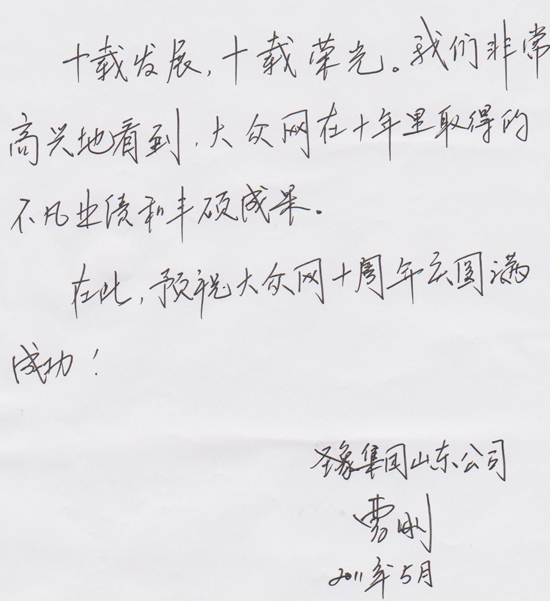 十载发展，十载荣光。我们非常
高兴地看到，大众网在十年里取得的
不凡业绩和丰硕成果。
在此，预祝大众网十周年庆圆满
成功！
圣象集团山东公司
曹刚
2011年5月